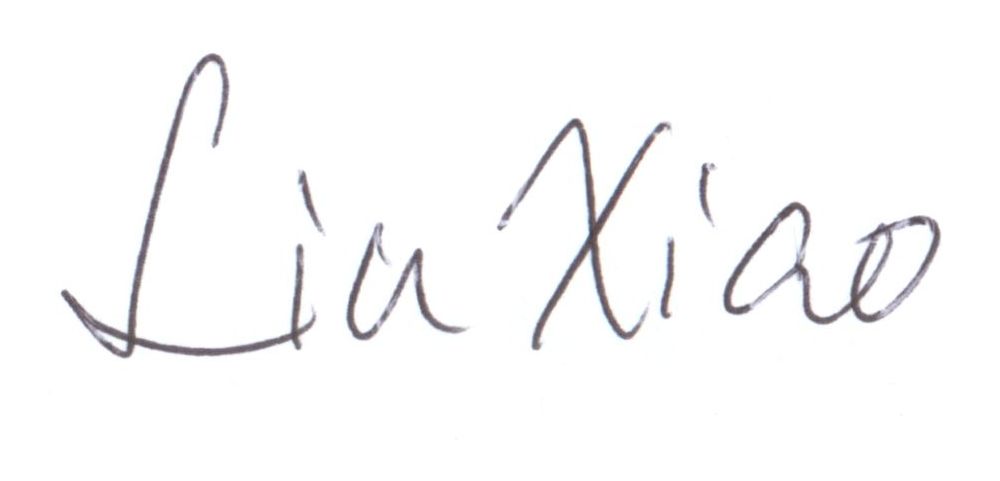 Liu Xiao